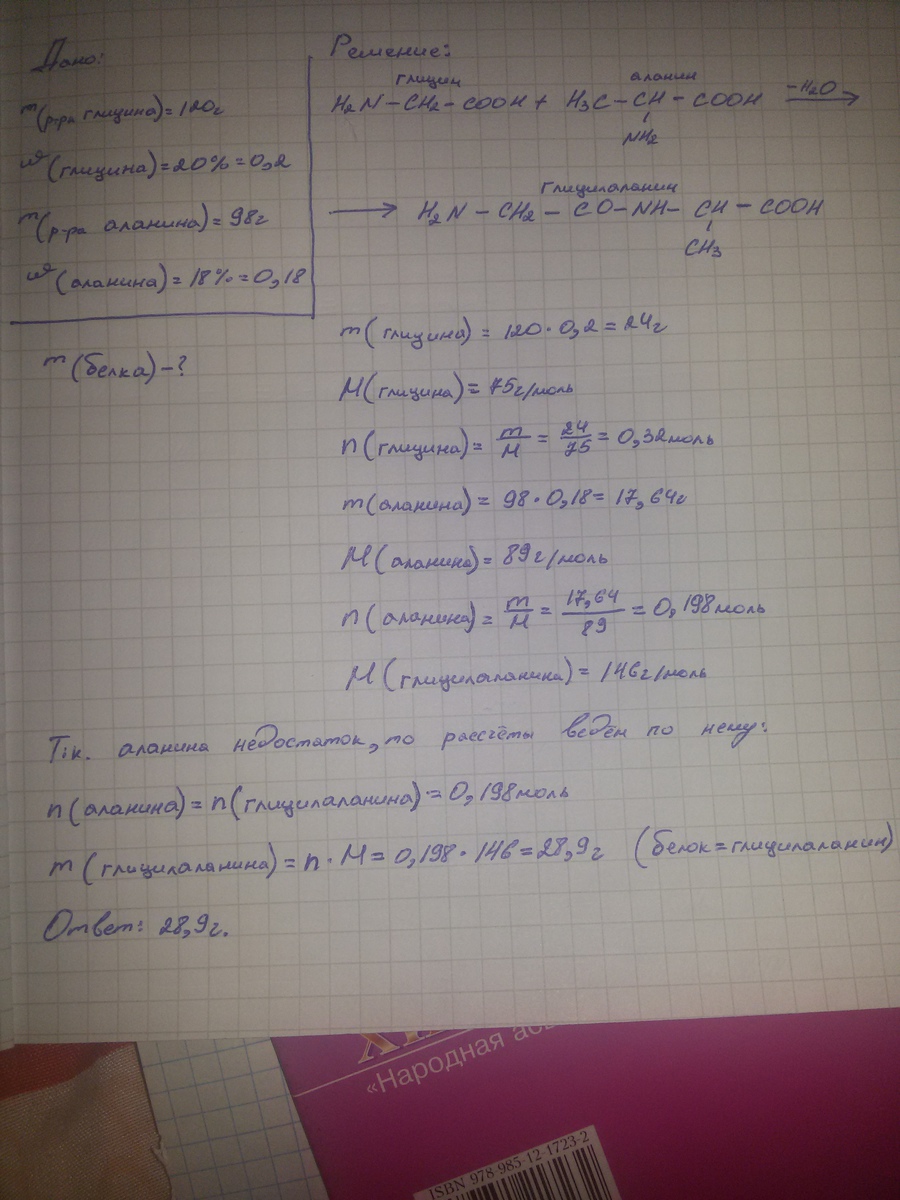 Дано:
m(р-ра глицина) = 120г
ω(глицина) = 20% = 0,2
m(р-ра аланина) = 98г
ω(аланина) = 18% = 0,18
m(белка) – ?
Решение:
глицин аланин
H₂N – CH₂ – COOH + H₃C – CH – COOH –H₂O
NH₂
глицилаланин
H₂N – CH₂ – CO – NH – CH – COOH
CH₃
m(глицина) = 120 · 0,2 = 24г
M(глицина) = 75г/моль
n(глицина) = m/M = 24/75 = 0,32моль
m(аланина) = 98 · 0,18 = 17,64г
M(аланина) = 89г/моль
n(аланина) = m/M = 17,64/89 = 0,198моль
M(глицилаланина) = 146г/моль
Т.к. аланина недостаток, то рассчёты ведём по нему:
n(аланина) = n(глицилаланина) = 0,198моль
m(глицилаланина) = n · M = 0,198 · 146 = 28,9г (белок = глицилаланин)
Ответ: 28,9г.
«Народная
ISBN 978-985-12-1723-2